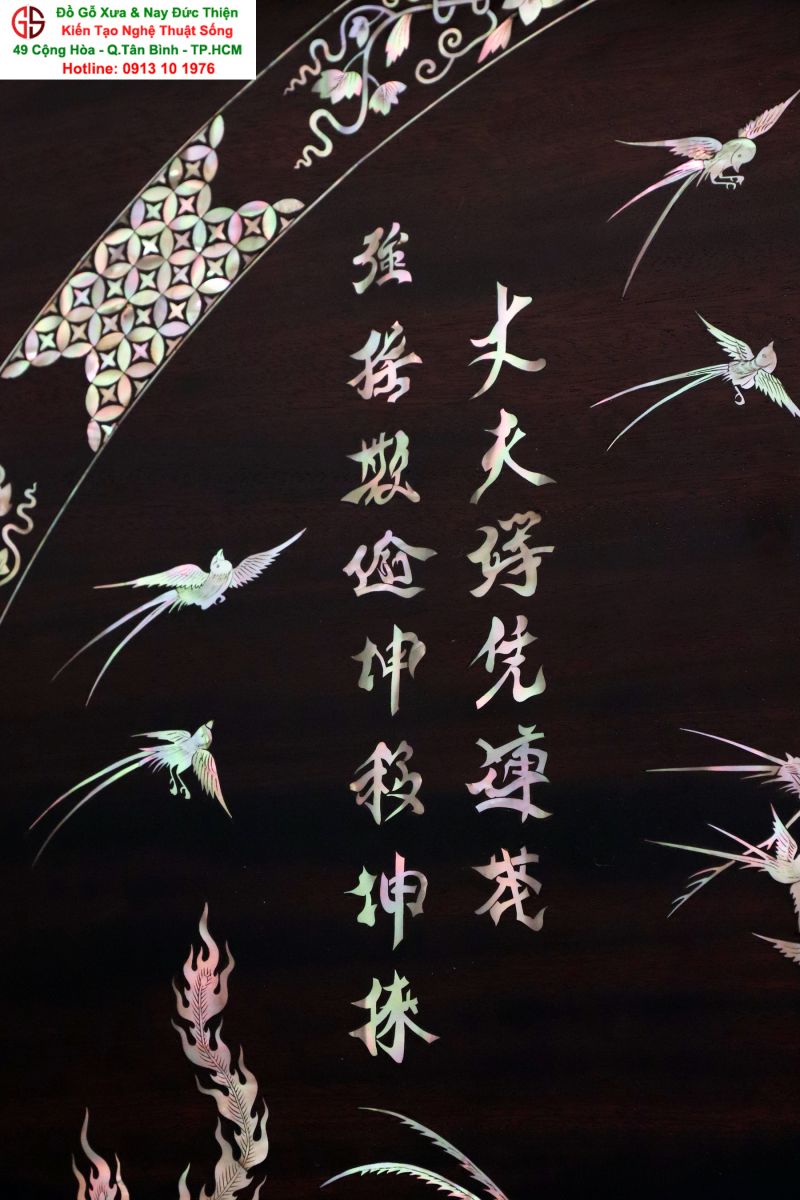 Đồ Gỗ Xưa & Nay Đức Thiện
Kiến Tạo Nghệ Thuật Sống
49 Cộng Hòa - Q.Tân Bình - TP.HCM
Hotline: 0913 10 1976
丈夫凭茂
強欺偷坤移坤